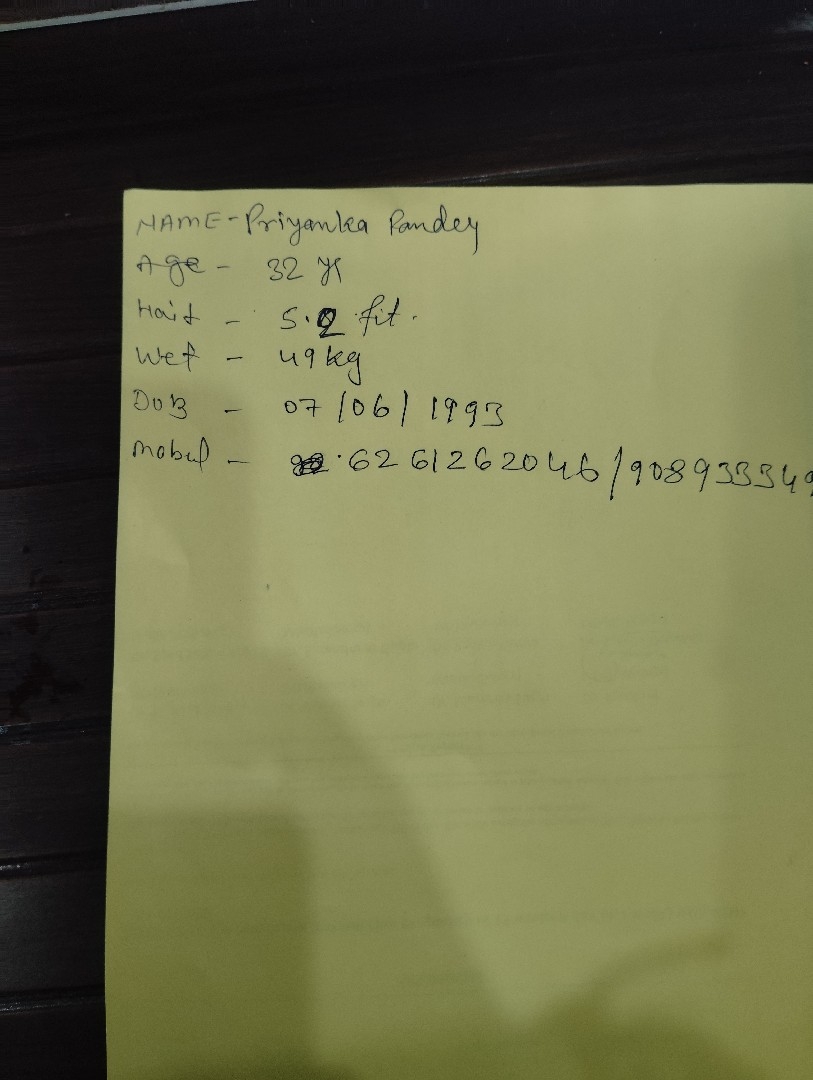 NAME - Priyanka Pandey
Age - 32 yr
Hait - 5.2 fit.
Wet - 49 kg
DOB - 07/06/1993
mobul - 6261262046/908933349